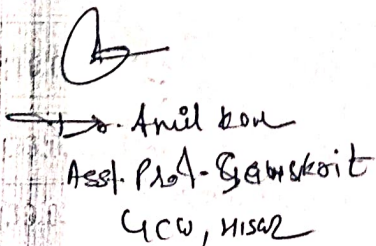 Dr. Anil Kou
Asst. Prof. Sanskrit
GCW, HISAR